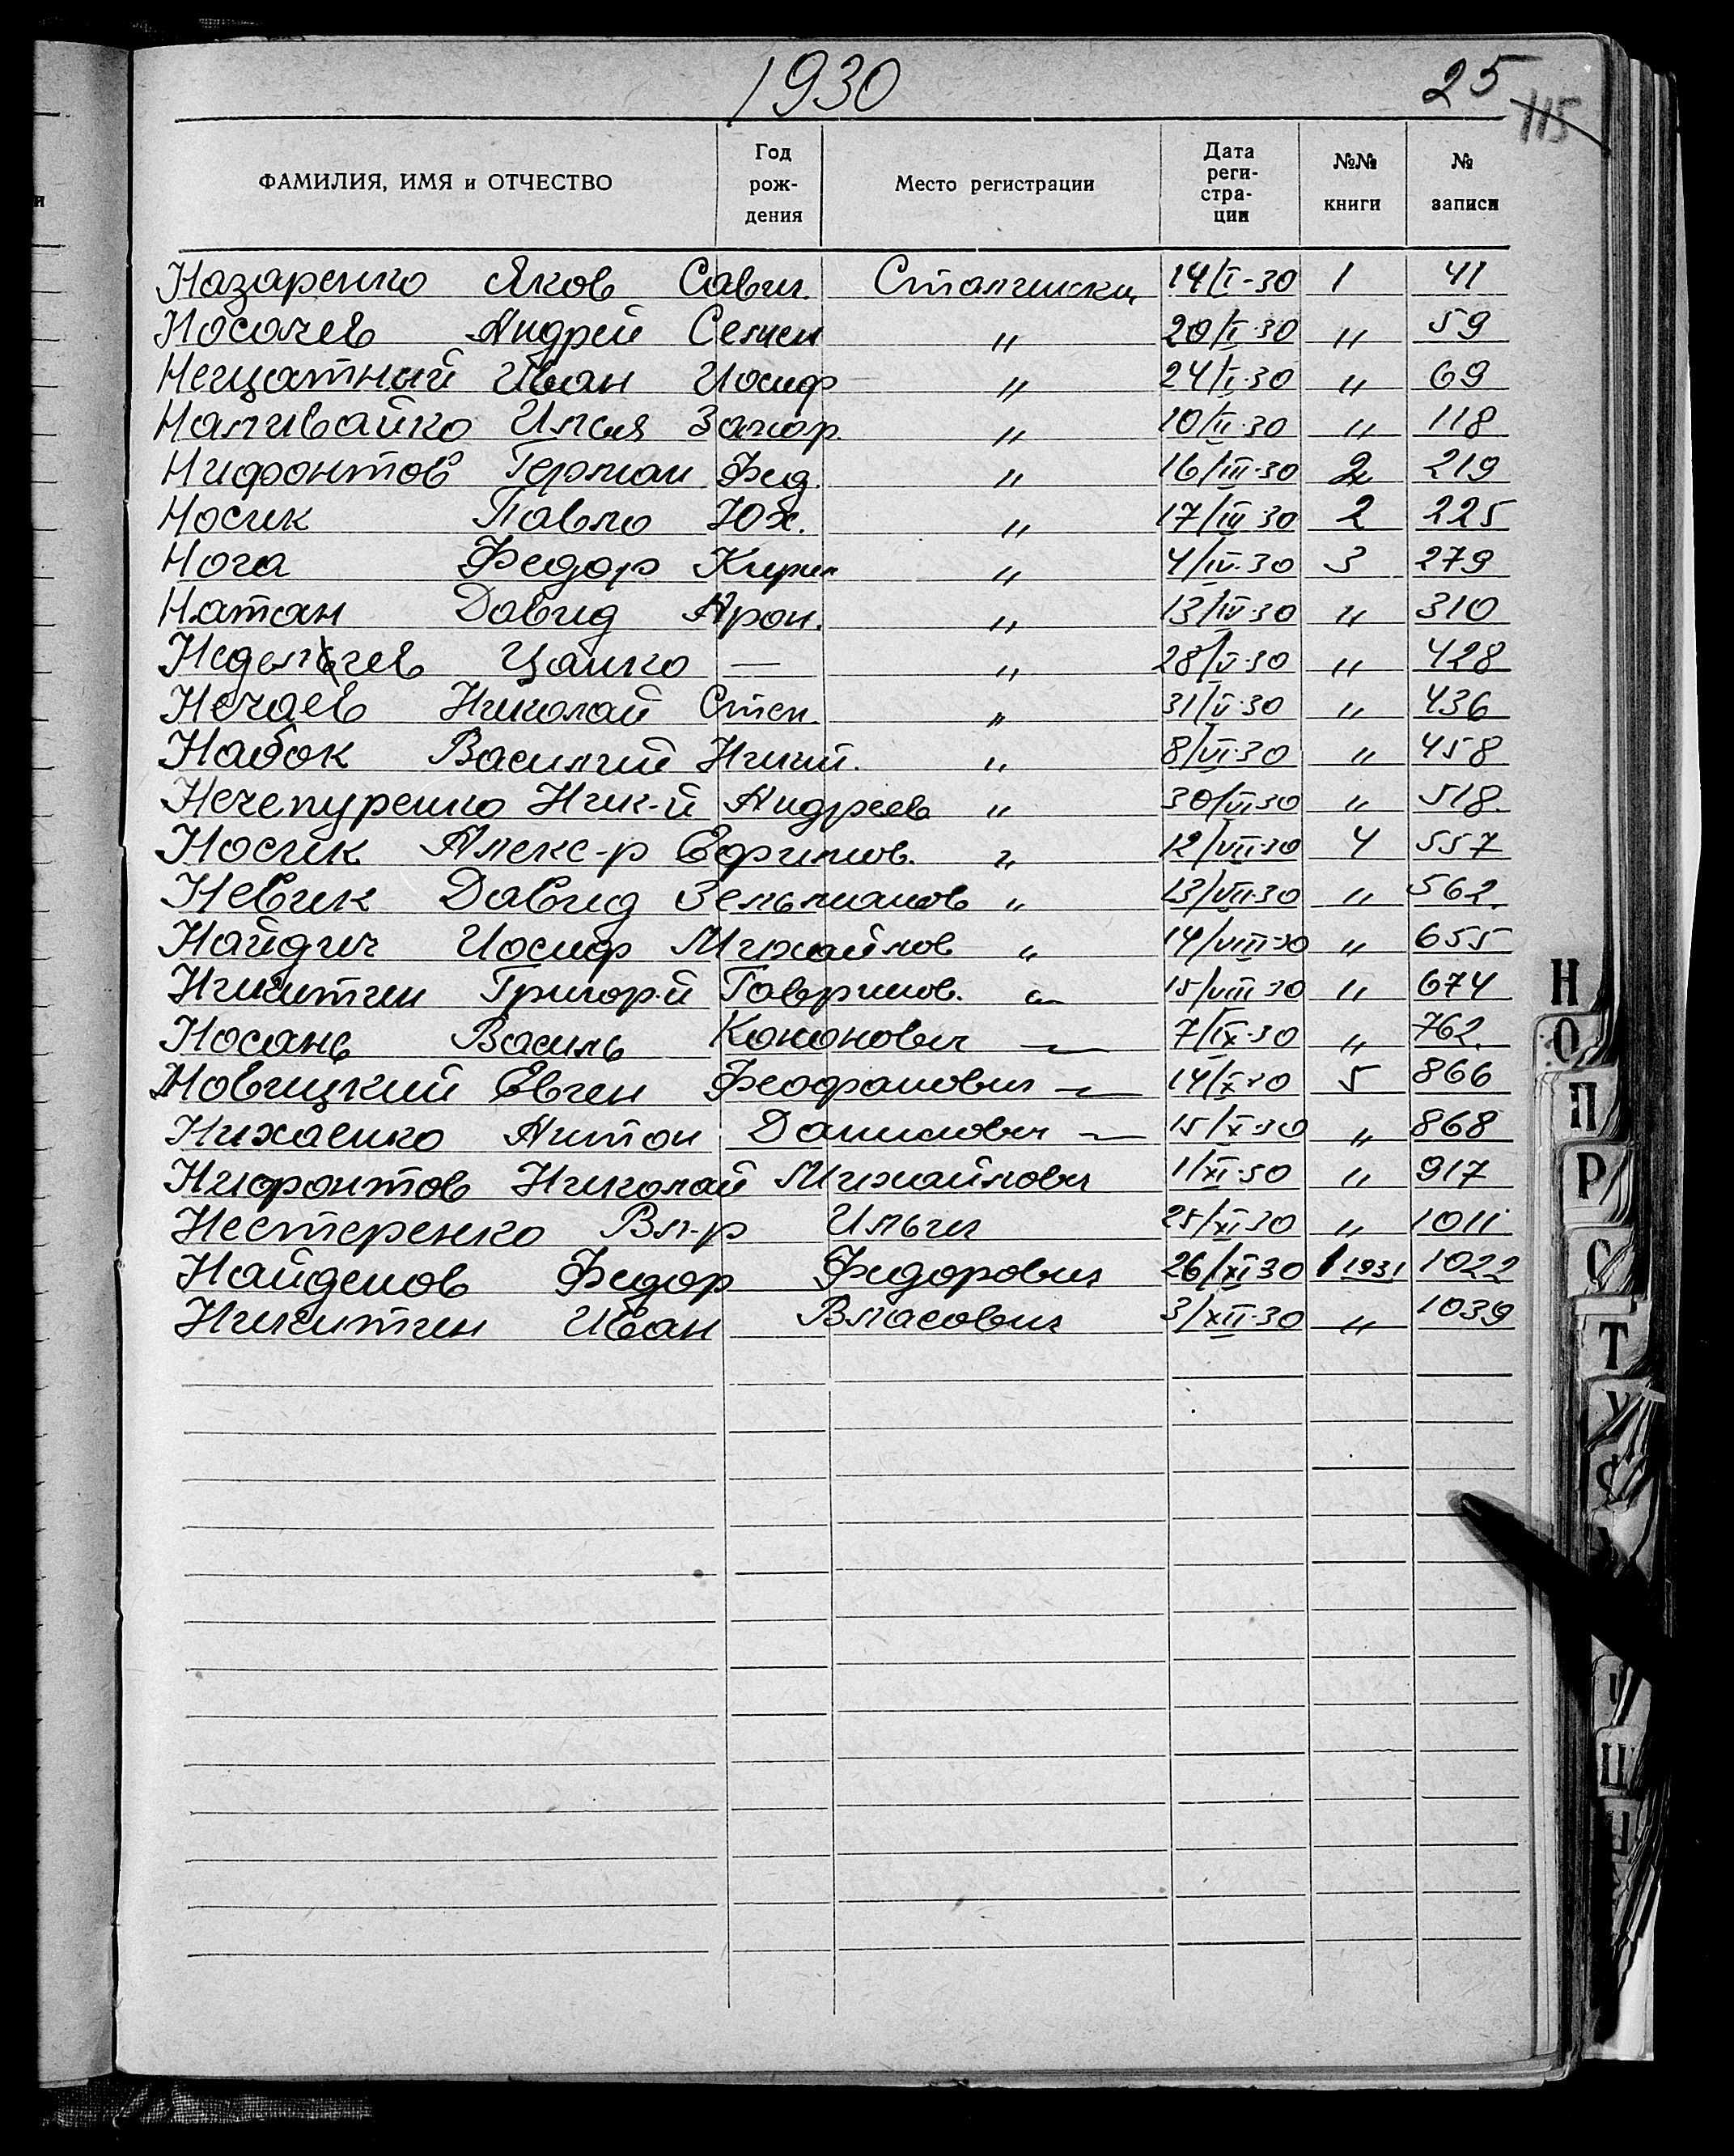 1930
25
115
ФАМИЛИЯ, ИМЯ и ОТЧЕСТВО Год рож- дения Место регистрации Дата реги- стра- ции №№ книги № записи
Назаренко Яков Савич. 14/I-30 1 41
Носачев Андрей Семен " 20/I-30 " 59
Нещатный Иван Иосиф " 24/I-30 " 69
Наливайко Илья Захар. " 10/II-30 " 118
Нифонтов Герман Фед. " 16/III-30 2 219
Носик Павло Юх. " 17/III 30 2 225
Нога Федор Кирил " 4/IV-30 3 279
Натан Давид Арон. " 13/IV-30 " 310
Цанко — " 28/V-30 " 428
Нечаев Николай Степ. " 31/V-30 " 436
Набок Василий Никит. " 8/VI-30 " 458
Нечепуренко Ник-й Андреев " 30/VI 30 " 518
Носик Алекс-р Ефимов. " 12/VII-30 4 557
Невик Давид Зельманов " 13/VII-30 " 562
Найдич Иосиф Михайлов " 14/VIII-30 " 655
Никитин Григор-й Гаврилов. " 15/VIII 30 " 674
Носань Василь Кононович — 7/IX-30 " 762
Новицкий Евген Феофанович — 14/X-30 5 866
Нихаенко Антон Данилович — 15/X-30 " 868
Нифонтов Николай Михайлович 1/XI-30 " 917
Нестеренко Вл-р Ильич 25/XI-30 " 1011
Найденов Федор Федорович 26/XI 30 1 1931 1022
Никитин Иван Власович 3/XII-30 " 1039
Н
О
П
Р
С
Т
У
Ш